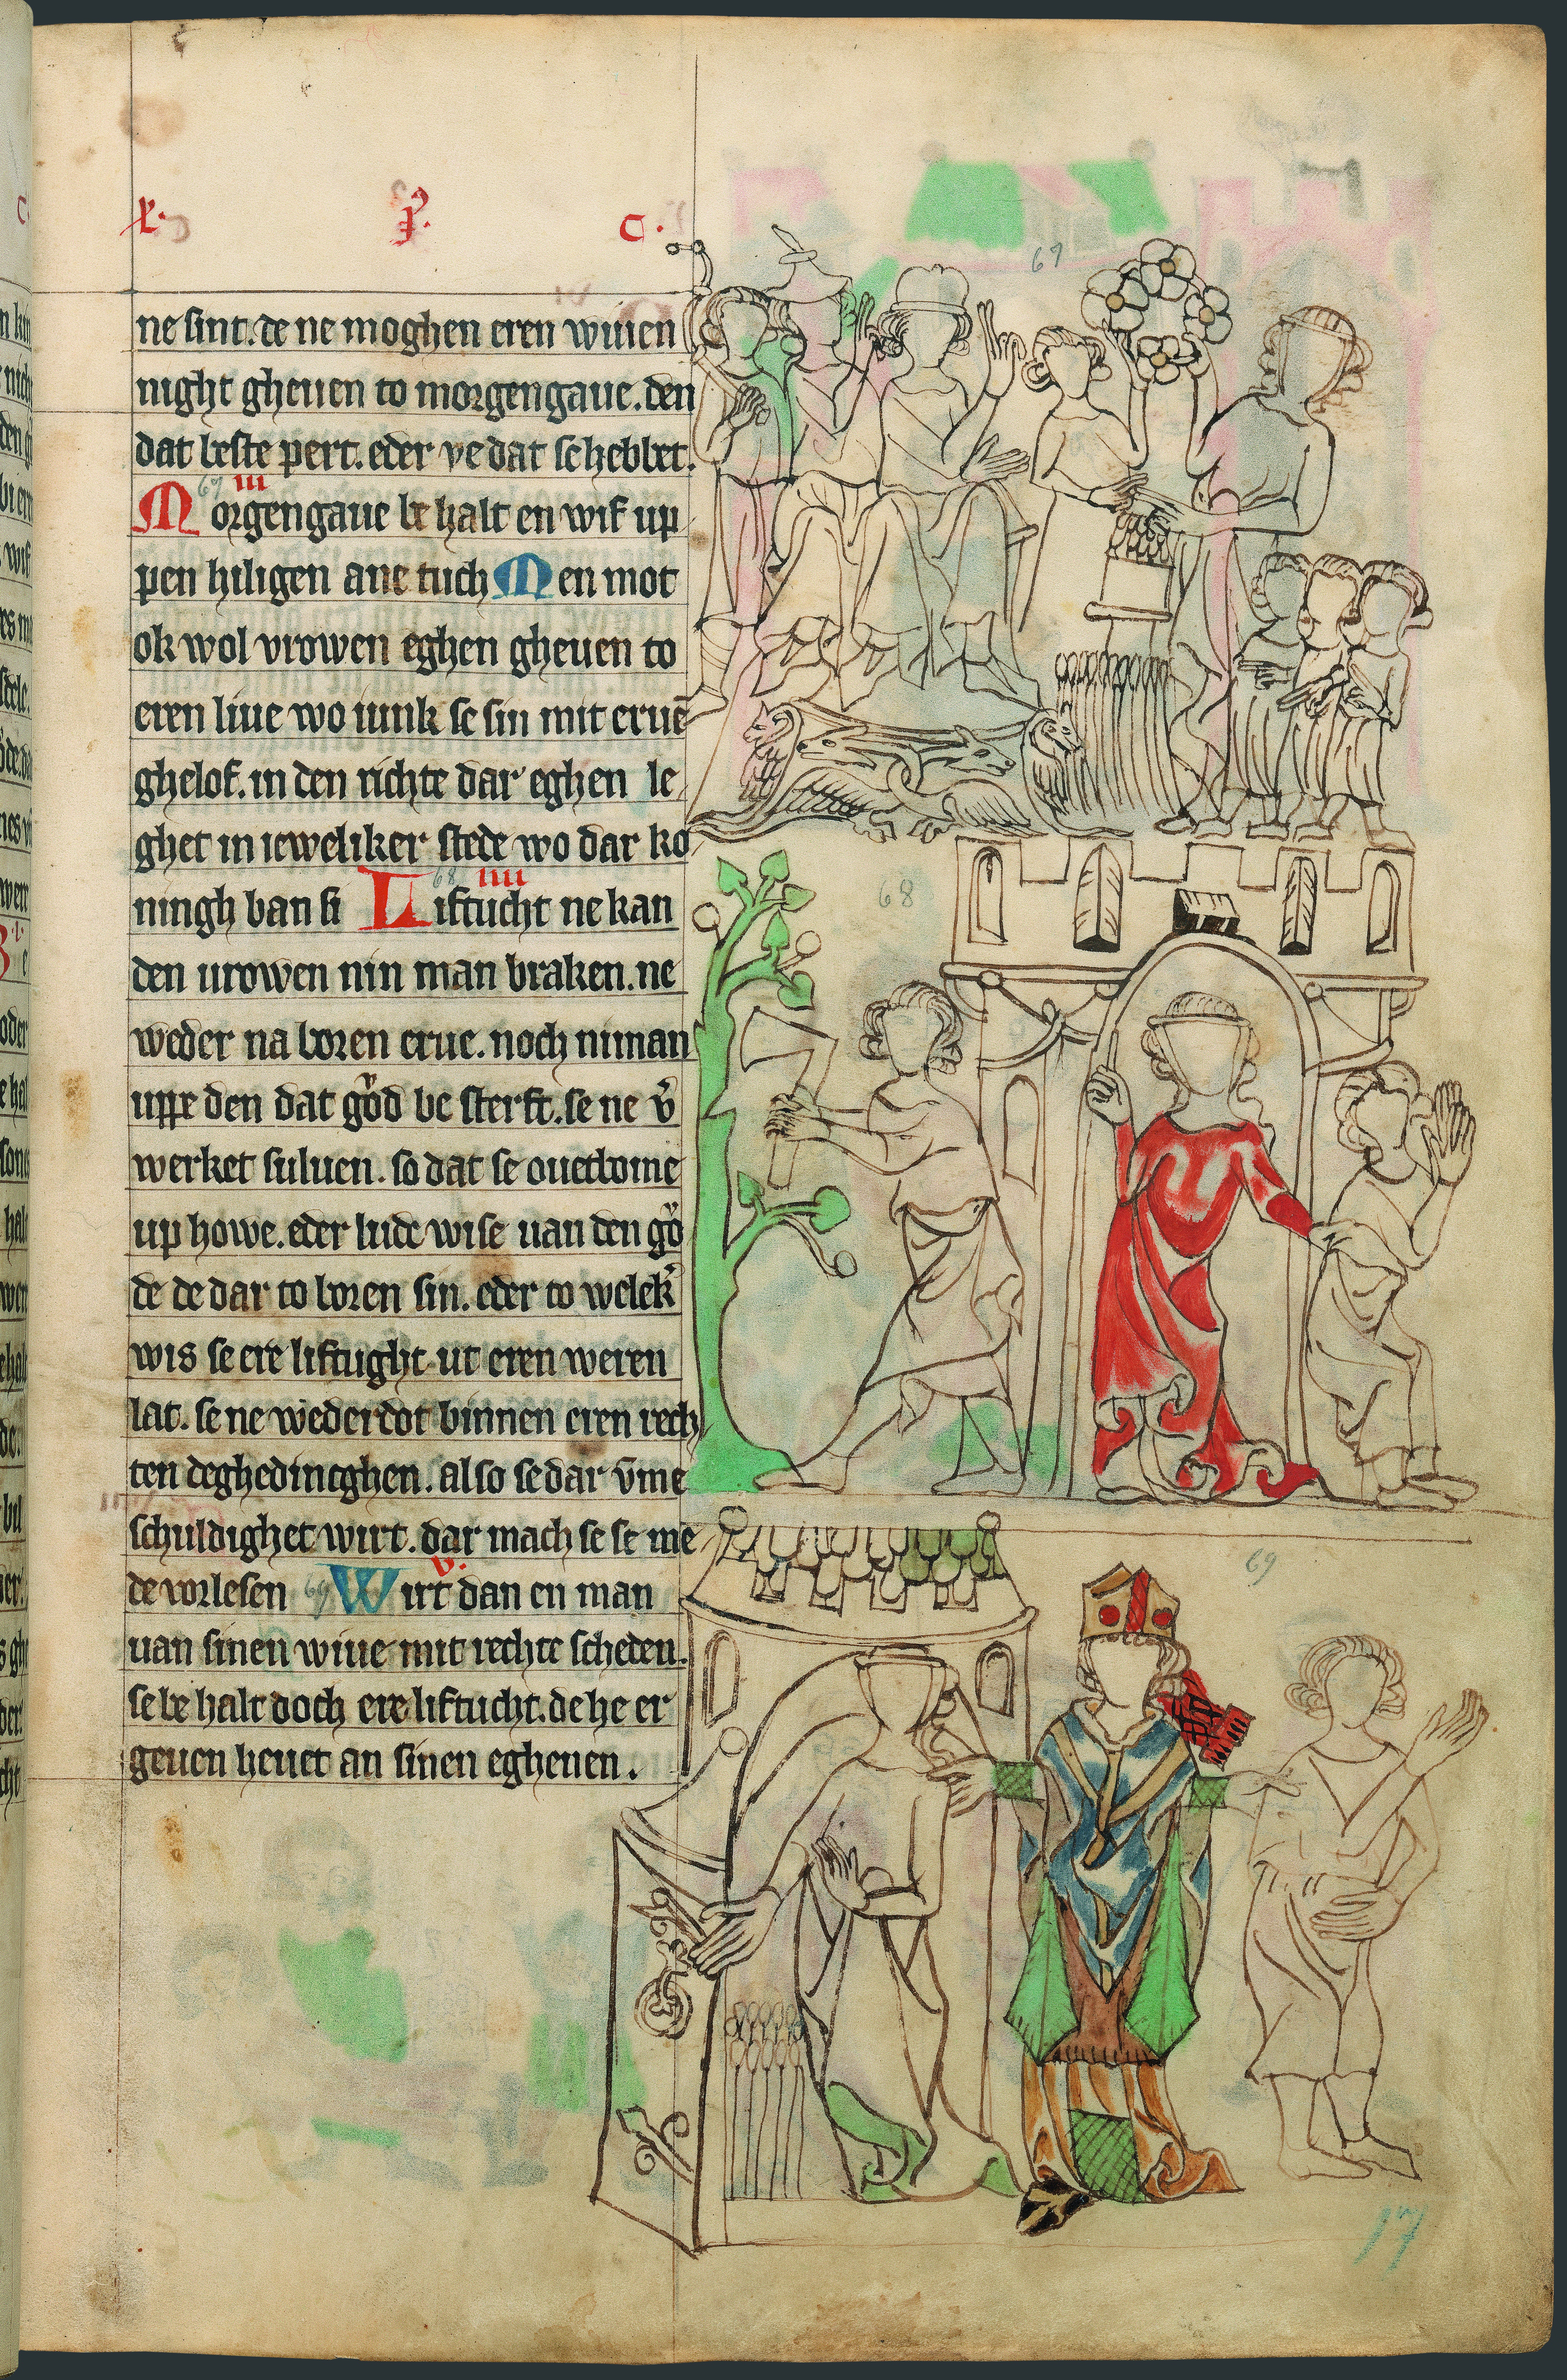 x. p. c.
67
ne sint. de ne moghen eren wiuen
night gheuen to morgengaue. den
dat beste pert. eder ve dat scheblet.
67 III
Morgengaue be halt en wif up
pen hiligen ane tuch Men mot
ok wol vrowen eghen gheuen to
eren liue wo iunk se sin mit eruē
ghelof. in den richte dar eghen le
ghet in ieweliker stede wo dar ko
68 IIII 68
ningh ban si Liftucht ne kan
den urowen nin man braken. ne
weder na boren erue. noch niman
uppe den dat god be sterft. se ne v̄
werket suluen. so dat se ouetbome
up howe. eder lude wise uan den go
de de dar to boren sin. eder to welek
wis se ere liftught ut eren weren
lat. se ne wederdot binnen eren rech
ten deghedincghen. also se dar v̄me
schuldighet wirt. dar mach se se me
69 v. 69
de vorlesen Wirt dan en man
uan sinen wiue mit rechte scheden.
se be halt doch ere liftucht. de he er
geuen heuet an sinen eghenen.
17